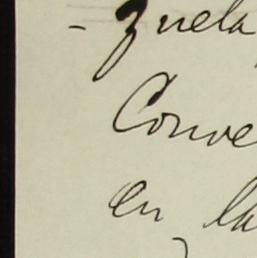 - zuela
Conve
en la